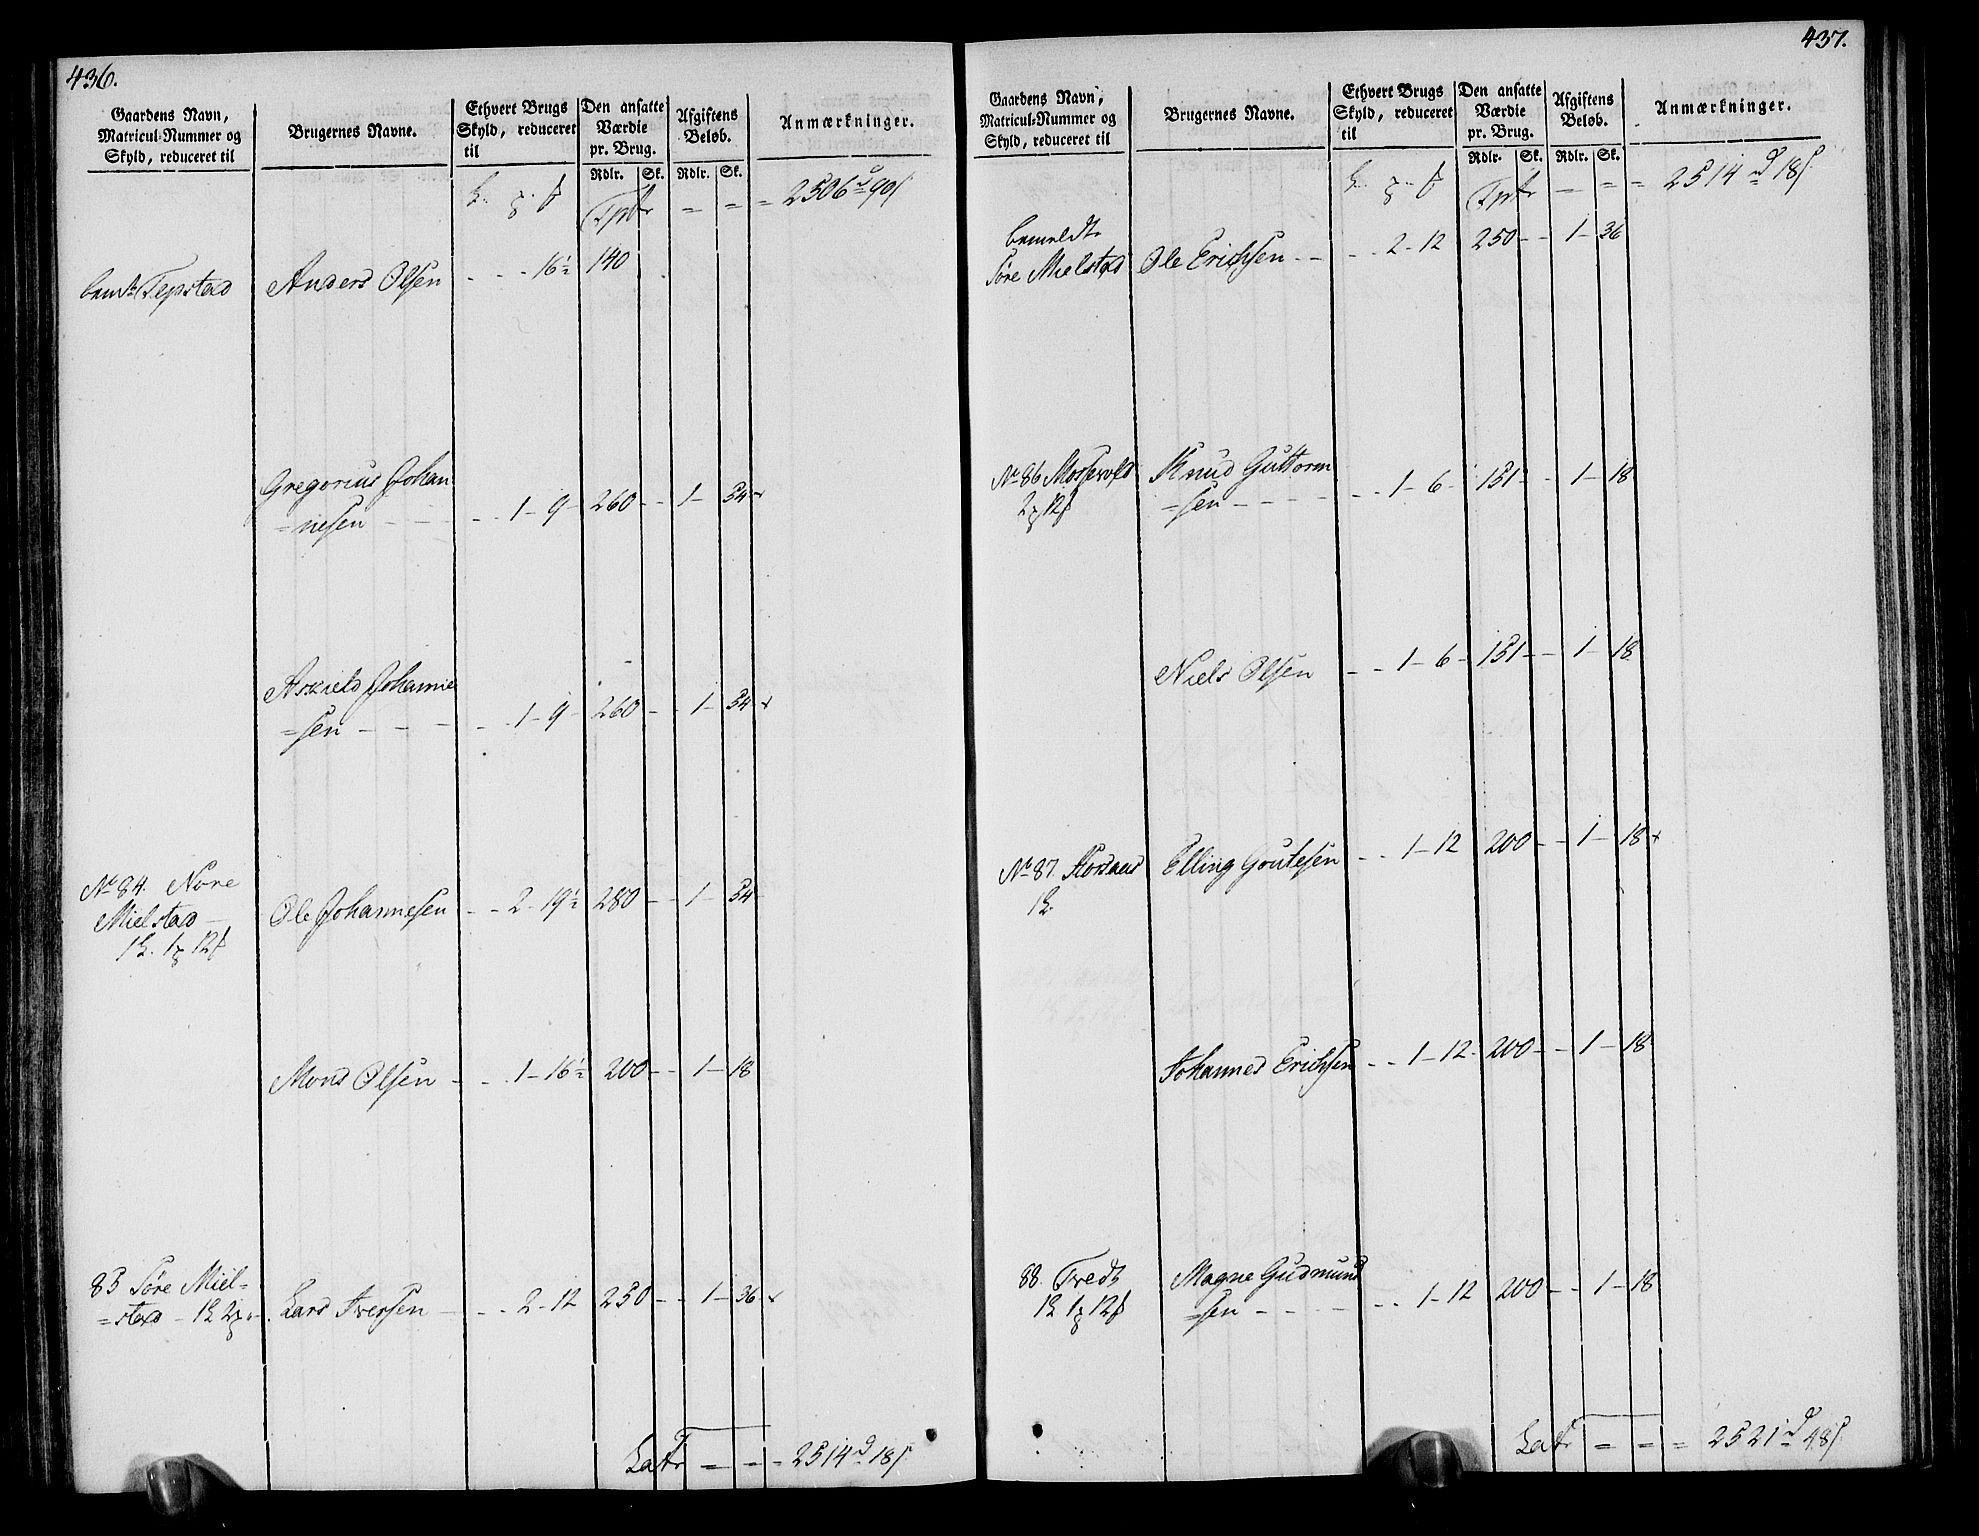 436.
Gaardens Navn, Matricul-Nummer og Skyld, reduceret til
Brugernes Navne.
Ethvert Brugs Skyld, reduceret til
Den ansatte Værdie pr. Brug.
Afgiftens Beløb.
Anmærkninger.
Rdlr. Sk. Rdlr. Sk.
Tptr = = = 2506 d 90 s
bemte Tepstad Anders Olsen - - - 16½ 140
Gregorius Johan
=nesen - - - - - 1 - 9 - 260 - - 1 - 54 x
Askield Johanne
=sen - - - - - 1 - 9 - 260 - - 1 - 54 x
No 84. Nore
Mielstad - Ole Johannesen - - 2 - 19½ 280 - - 1 - 54
1 L. 1 p 12 s
Mons Olsen - - - 1 - 16½ 200 - - 1 - 18
85 Søre Miel=
=stad - 1 L 2 p - Lars Iversen - - - 2 - 12 250 - - 1 - 36 x
Latr = - - 2514 d 18 s
437.
Gaardens Navn, Matricul-Nummer og Skyld, reduceret til
Brugernes Navne.
Ethvert Brugs Skyld, reduceret til
Den ansatte Værdie pr. Brug.
Afgiftens Beløb.
Anmærkninger.
Rdlr. Sk. Rdlr. Sk.
Tptr = = = 2514 d 18 s
bemeldte
Søre Mielstad Ole Erichsen - - - - 2 - 12 250 - - 1 - 36
No 86 Mossevold Knud Guttorm
2 p 12 s =sen - - - - - - 1 - 6 - 151 - - 1 - 18
Niels Olsen - - 1 - 6 - 151 - - 1 - 18
No 87. Elling Goutesen - - 1 - 12 200 - - 1 - 18 x
1 L.
Johannes Erichsen - - 1 - 12 - 200 - - 1 - 18
88. Tvedt Magne Gudmund
1 L 1 p 12 s =sen - - - - - - 1 - 12 200 - - 1 - 18
Latr = = = 2521 d 48 s